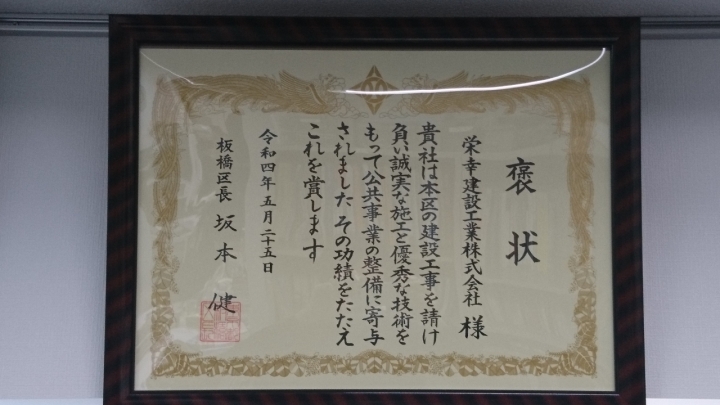 褒状
栄幸建設工業株式会社 様
貴社は本区の建設工事を請け
負い誠実な施工と優秀な技術を
もって公共事業の整備に寄与
されました その功績をたたえ
これを賞します
令和四年五月二十五日
板橋区長 坂本 健